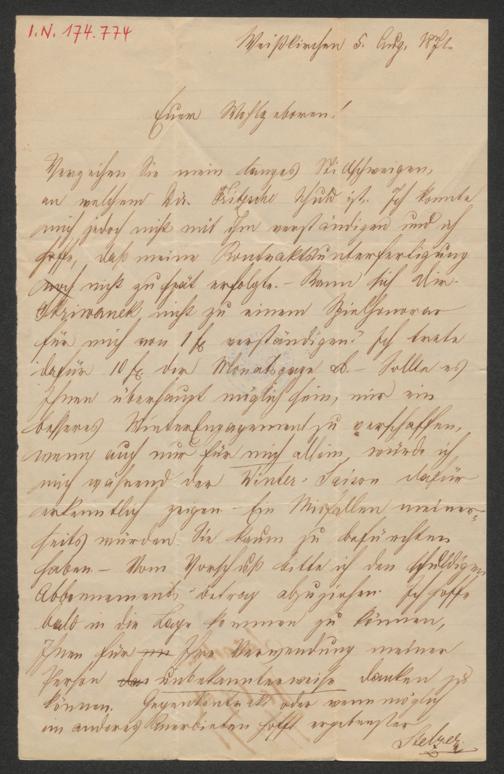 I.N. 174.774
Weißkirchen 5. Aug. 1871.
Euer Wohlgeboren!
Verzeihen Sie mein langes Stillschweigen,
an welchem Dir. Fritzsche schuld ist. Ich konnte
mich jedoch nicht mit ihm verständigen und ich
hoffe, daß meine Kontraktsunterfertigung
noch nicht zu spät erfolgte. – Kann sich Dir.
nicht zu einem Spielhonorar
für mich von 1 f verständigen? Ich trete
dafür 10 f der Monatsgage ab – Sollte es
Ihnen überhaupt möglich sein, mir ein
besseres Winterengagement zu verschaffen,
wenn auch nur für mich allein, würde ich
mich während der Winter-Saison dafür
erkenntlich zeigen – Ein Misfallen meiner-
seits würden Sie kaum zu befürchten
haben – Vom Vorschuß bitte ich den schuldigen
Abbonnements-betrag abzuziehen. Ich hoffe
bald in die Lage kommen zu können,
Ihnen für Ihre Verwendung meiner
Person unbekannterweise danken zu
können. Gegenkontrakt oder wenn möglich
ein anderes Anerbieten hofft ergebenster
Stelzer